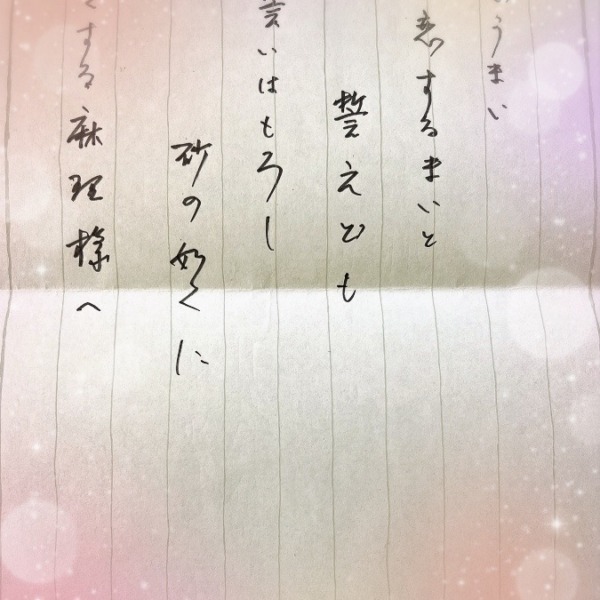 うまい
恋するまいと
誓えども
誓いはもろし
砂の如くに
する麻理様へ